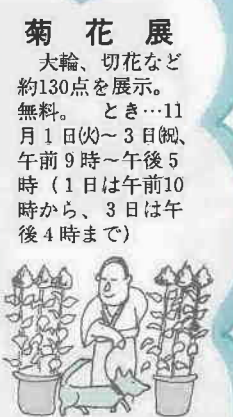 菊花展
大輪、切花など
約130点を展示。
無料。 とき…11
月1日㈫~3日㈷、
午前9時~午後5
時(1日は午前10
時から、3日は午
後4時まで)